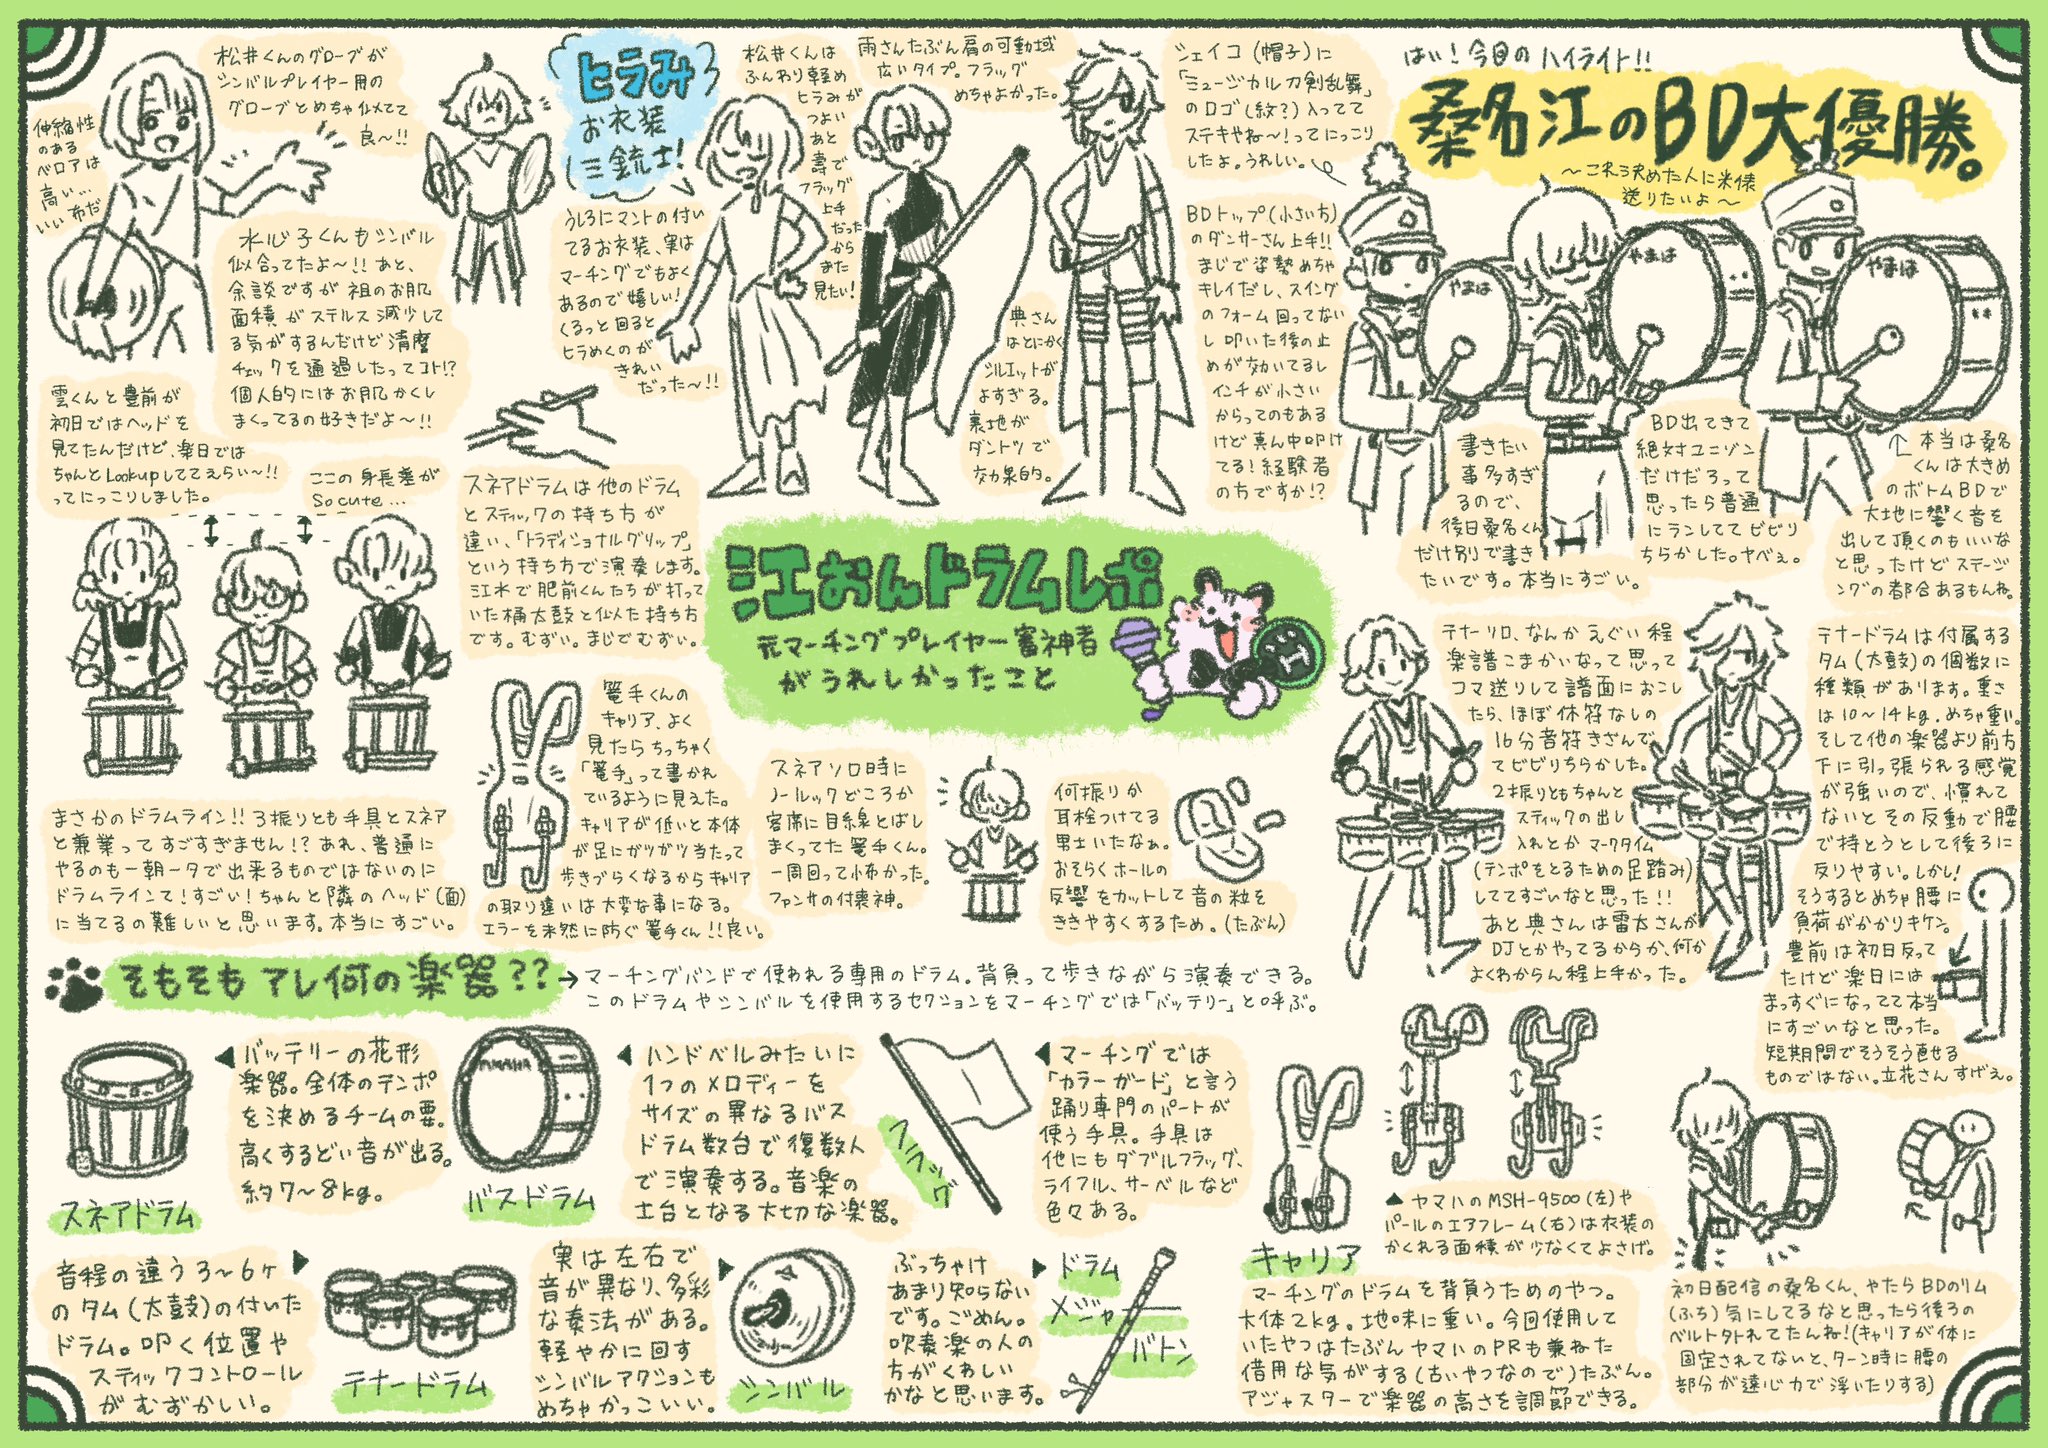 松井くんのグローブが
シンバルプレイヤー用の
グローブとめちゃ似てて
良〜!!
伸縮性
のある
ベロアは
高い…
いい布だ
水心子くんもシンバル
似合ってたよ〜!! あと、
余談ですが祖のお肌
面積がステルス減少して
る気がするんだけど清麿
チェックを通過したってコト!?
個人的にはお肌かくし
まくってるの好きだよ〜!!
雲くんと豊前が
初日ではヘッドを
見てたんだけど、楽日では
ちゃんとLookupしててえらい〜!!
ってにっこりしました。
ここの身長差が
So cute…
まさかのドラムライン!! 3振りとも手具とスネア
と兼業ってすごすぎません!? あれ、普通に
やるのも一朝一夕で出来るものではないのに
ドラムラインて! すごい! ちゃんと隣のヘッド(面)
に当てるの難しいと思います。本当にすごい。
ヒラみ
お衣装
三銃士!
うしろにマントの付い
てるお衣装、実は
マーチングでもよく
あるので嬉しい!
くるっと回ると
ヒラめくのが
きれい
だった〜!!
松井くんは
ふんわり軽め
ヒラみが
つよい
あと
壽で
フラッグ
上手
だった
から
また
見たい!
雨さんたぶん肩の可動域
広いタイプ。フラッグ
めちゃよかった。
典さん
はとにかく
シルエットが
よすぎる。
裏地が
ダントツで
効果的。
スネアドラムは他のドラム
とスティックの持ち方が
違い、「トラディショナルグリップ」
という持ち方で演奏します。
江水で肥前くんたちが打って
いた桶太鼓と似た持ち方
です。むずい。まじでむずい。
シェイコ(帽子)に
「ミュージカル刀剣乱舞」
のロゴ(紋?)入ってて
ステキやね〜! ってにっこり
したよ。うれしい。
はい! 今日のハイライト!!
桑名江のBD大優勝。
〜これ決めた人に米俵
送りたいよ〜
BDトップ(小さい方)
のダンサーさん上手!!
まじで姿勢めちゃ
キレイだし、スイング
のフォーム回ってない
し叩いた後の止
めが効いてるし
インチが小さい
からってのもある
けど真ん中叩け
てる! 経験者
の方ですか!?
やまは
やまは
やまは
書きたい
事多すぎ
るので、
後日桑名くん
だけ別で書き
たいです。本当にすごい。
BD出てきて
絶対ユニゾン
だけだろって
思ったら普通
にランしててビビり
ちらかした。ヤベぇ。
本当は桑名
くんは大きめ
のボトムBDで
大地に響く音を
出して頂くのもいいな
と思ったけどステージ
ングの都合あるもんね。
江おんドラムレポ
元マーチングプレイヤー審神者
がうれしかったこと
江
篭手くんの
キャリア、よく
見たらちっちゃく
「篭手」って書かれ
ているように見えた。
キャリアが低いと本体
が足にガツガツ当たって
歩きづらくなるからキャリア
の取り違いは大変な事になる。
エラーを未然に防ぐ篭手くん!! 良い。
スネアソロ時に
ノールックどころか
客席に目線とばし
まくってた篭手くん。
一周回って怖かった。
ファンサの付喪神。
何振りか
耳栓つけてる
男士いたなぁ。
おそらくホールの
反響をカットして音の粒を
ききやすくするため。(たぶん)
テナーソロ、なんかえぐい程
楽譜こまかいなって思って
コマ送りして譜面におこし
たら、ほぼ休符なしの
16分音符きざんで
てビビりちらかした。
2振りともちゃんと
スティックの出し
入れとかマークタイム
(テンポをとるための足踏み)
しててすごいなと思った!!
あと典さんは雷太さんが
DJとかやってるからか、何か
よくわからん程上手かった。
テナードラムは付属する
タム(太鼓)の個数に
種類があります。重さ
は10〜14kg. めちゃ重い。
そして他の楽器より前方
下に引っ張られる感覚
が強いので、慣れて
ないとその反動で腰
で持とうとして後ろに
反りやすい。しかし!
そうするとめちゃ腰に
負荷がかかりキケン。
豊前は初日反って
たけど楽日には
まっすぐになってて本当
にすごいなと思った。
短期間でそうそう直せる
ものではない。立花さんすげぇ。
そもそもアレ何の楽器??
→マーチングバンドで使われる専用のドラム。背負って歩きながら演奏できる。
このドラムやシンバルを使用するセクションをマーチングでは「バッテリー」と呼ぶ。
バッテリーの花形
楽器。全体のテンポ
を決めるチームの要。
高くするどい音が出る。
約7〜8kg。
スネアドラム
YAMAHA
バスドラム
ハンドベルみたいに
1つのメロディーを
サイズの異なるバス
ドラム数台で複数人
で演奏する。音楽の
土台となる大切な楽器。
フラッグ
マーチングでは
「カラーガード」と言う
踊り専門のパートが
使う手具。手具は
他にもダブルフラッグ、
ライフル、サーベルなど
色々ある。
音程の違う3〜6ヶ
のタム(太鼓)の付いた
ドラム。叩く位置や
スティックコントロール
がむずかしい。
テナードラム
実は左右で
音が異なり、多彩
な奏法がある。
軽やかに回す
シンバルアクションも
めちゃかっこいい。
シンバル
ぶっちゃけ
あまり知らない
です。ごめん。
吹奏楽の人の
方がくわしい
かなと思います。
ドラム
メジャー
バトン
キャリア
マーチングのドラムを背負うためのやつ。
大体2kg. 地味に重い。今回使用して
いたやつはたぶんヤマハのPRも兼ねた
借用な気がする(古いやつなので)たぶん。
アジャスターで楽器の高さを調節できる。
ヤマハのMSH-9500(左)や
パールのエアフレーム(右)は衣装の
かくれる面積が少なくてよさげ。
初日配信の桑名くん、やたらBDのリム
(ふち)気にしてるなと思ったら後ろの
ベルト外れてたんね! (キャリアが体に
固定されてないと、ターン時に腰の
部分が遠心力で浮いたりする)